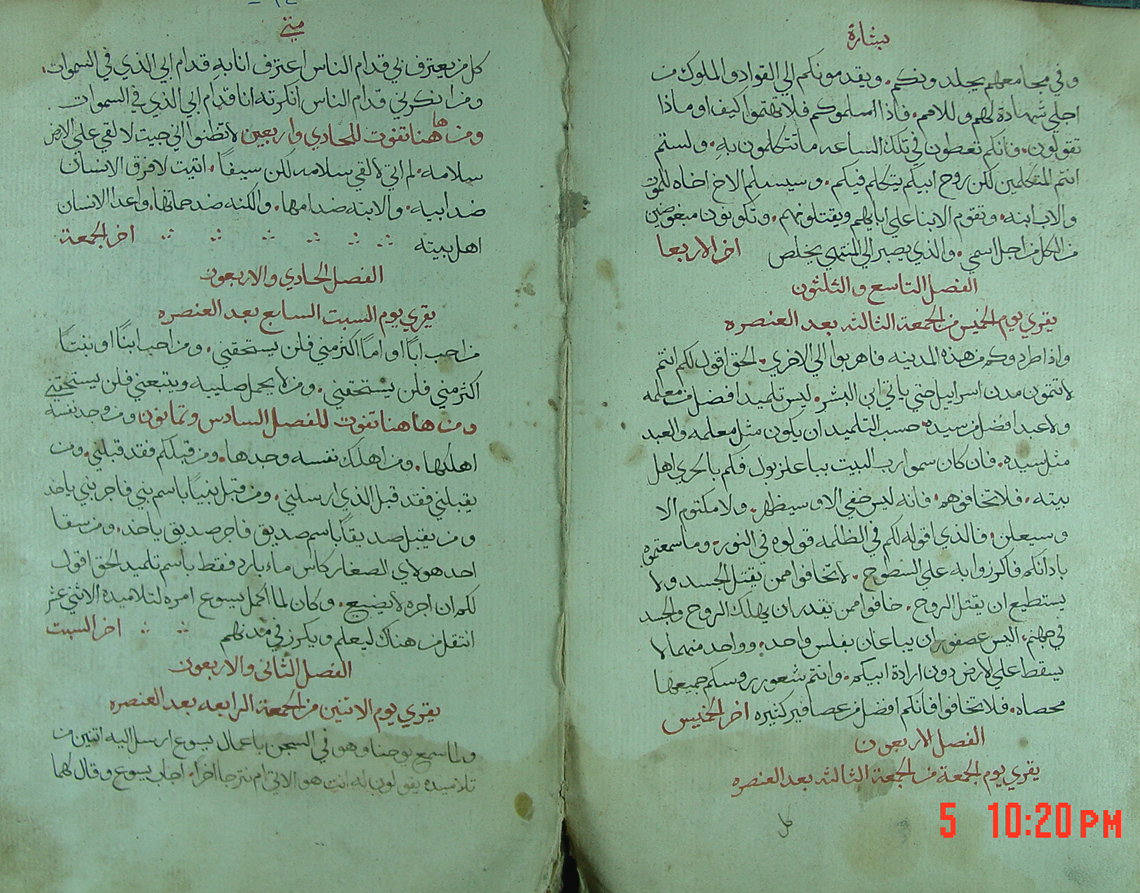 بشارة
وفي مجامعهم يجلدونكم. ويقدمونكم الي القواد والملوك من
اجلي شهادة لهم وللامم. فاذا اسلموكم فلا تهتموا كيف او ماذا
تقولون. فانكم تعطون في تلك الساعه ما تتكلمون به. ولستم
انتم المتكلمين لكن روح ابيكم يتكلم فيكم. وسيسلم الاخ اخاه للموت
والاب ابنه. وتقوم الابنا علي ابايهم ويقتلونهم. وتكونون مبغوضين
من الكل من اجل اسمي. والذي يصبر الي المنتهي يخلص اخر الاربعا
الفصل التاسع والثلثون
يقري يوم الخميس من الجمعة الثالثه بعد العنصره
واذا طردوكم من هذه المدينه فاهربوا الي الاخري. الحق اقول لكم انتم
لا تتمون مدن اسراييل حتي ياتي ابن البشر. ليس تلميد افضل من معلمه
ولا عبد افضل من سيده. حسب التلميد ان يكون مثل معلمه والعبد
مثل سيده. فان كان سموا رب البيت بباعلزبول فكم بالحري اهل
بيته. فلا تخافوهم. فانه ليس خفي الا وسيظهر. ولا مكتوم الا
وسيعلن. فالذي اقوله لكم في الظلمه قولوه في النور. وما سمعتموه
باذانكم فاكرزوا به علي السطوح. لا تخافوا ممن يقتل الجسد ولا
يستطيع ان يقتل الروح. خافوا ممن يقدر ان يهلك الروح والجسد
في جهنم. اليس عصفوران يباعان بفلس واحد. وواحد منهما لا
يسقط علي الارض دون ارادة ابيكم. وانتم شعور روسكم جميعها
محصاه. فلا تخافوا فانكم افضل من عصافير كثيره اخر الخميس
الفصل الاربعون
يقري يوم الجمعة من الجمعة الثالثه بعد العنصره
كل
متي
كل من يعترف بي قدام الناس اعترف انا به قدام ابي الذي في السموات.
ومن انكرني قدام الناس انكرته انا قدام ابي الذي في السموات
ومن هاهنا تفوت للحادي واربعين لا تظنوا اني جيت لالقي علي الارض
سلامه. لم اتي لالقي سلامه لكن سيفا. اتيت لافرق الانسان
ضد ابيه. والابنه ضد امها. والكنه ضد حماتها. واعدا الانسان
اهل بيته اخر الجمعة
الفصل الحادي والاربعون
يقري يوم السبت السابع بعد العنصره
من احب ابًا او امًا اكثر مني فلن يستحقني. ومن احب ابنًا او بنتًا
اكثر مني فلن يستحقني. ومن لا يحمل صليبه ويتبعني فلن يستحقني
ومن هاهنا تفوت للفصل السادس وثمانون ومن وجد نفسه
اهلكها. ومن اهلك نفسه وجدها. ومن قبلكم فقد قبلني. ومن
يقبلني فقد قبل الذي ارسلني. ومن قبل نبيًا باسم نبي فاجر نبي ياخد
ومن يقبل صديقًا باسم صديق فاجر صديق ياخد. ومن سقا
احد هولاي الصغار كاس ماء بارد فقط باسم تلميد الحق اقول
لكم ان اجره لا يضيع. وكان لما اكمل يسوع امره لتلاميذه الاثني عشر
انتقل من هناك ليعلم ويكرز في مدنهم اخر السبت
الفصل الثاني والاربعون
يقري يوم الاثنين من الجمعة الرابعه بعد العنصره
ولما سمع يوحنا وهو في السجن باعمال يسوع ارسل اليه اثنين من
تلاميده يقولون له انت هو الاتي ام نترجا اخرا. اجاب يسوع وقال لهما
5 10:20 PM